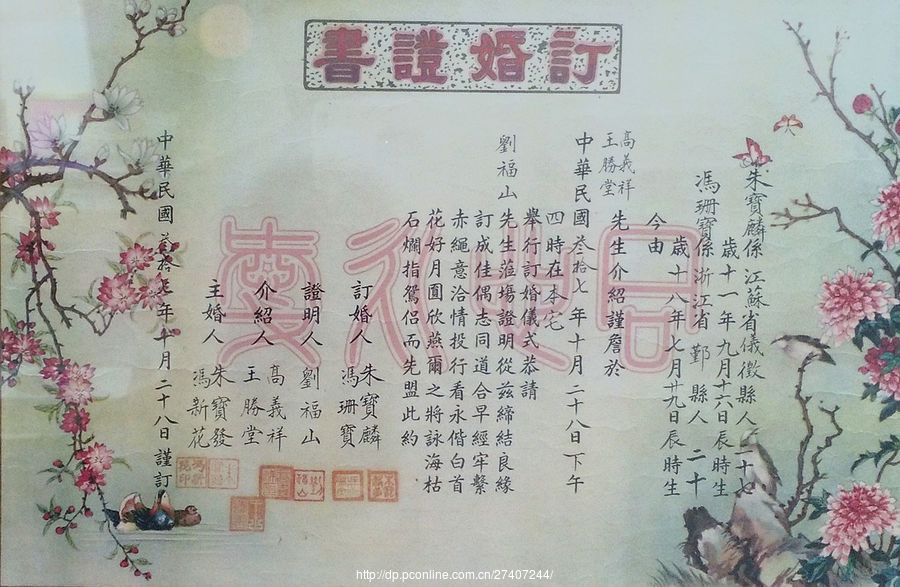 訂婚證書
朱寶麟係江蘇省儀徵縣人二十七
歲十一年九月十六日辰時生
馮珊寶係浙江省鄞縣人二十
歲十八年七月廿九日辰時生
今由
高義祥
王勝堂
先生介紹謹詹於
中華民國叁拾七年十月二十八日下午
四時在本宅
舉行訂婚儀式恭請
劉福山先生蒞場證明從茲締結良緣
訂成佳偶志同道合早經牢繫
赤繩意洽情投行看永偕白首
花好月圓欣燕爾之將詠海枯
石爛指鴛侶而先盟此約
訂婚人 朱寶麟
馮珊寶
證明人 劉福山
介紹人 高義祥
王勝堂
主婚人 朱寶發
馮新花
中華民國叁拾七年十月二十八日謹訂
http://dp.pconline.com.cn/27407244/